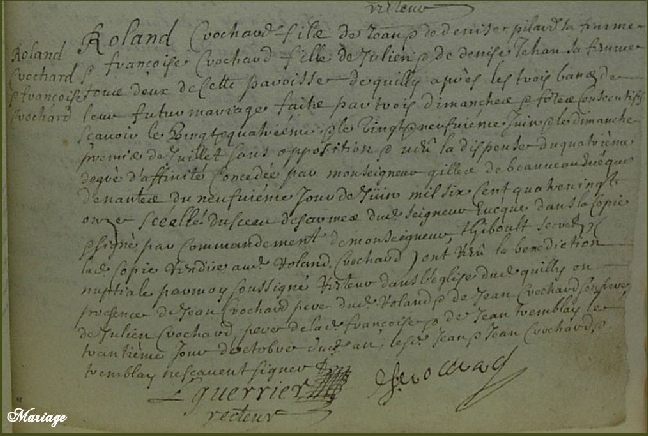 recteur
Roland Crochard filz de Jean & de denise pilard sa femme
Roland
Crochard
& françoise
Crochard
& françoise Crochard fille de Julien & de denise Jehan sa femme
tous deux de cette paroisse de quilly apres les trois bans de
leur futur mariage faits par trois dimanches & festes consecutifs
scauoir le Vingt quatrieme & le Vingt neufuieme Juin & le dimanche
premier de Juillet sans opposition & veu la dispense du quatrieme
degré d'affinité concedée par monseigneur gilles de beauueau euesque
de nantes du neufuiéme Jour de Juin mil six cent quatre uingt
onze scellé du sceau des armes dud. seigneur Euesque dans la copie
& signé par commandement de monseigneur, Thiboult
lad. copie aud. Roland Crochard ont receu la benediction
nuptiale par moy soussigné recteur dans l'eglise dud. quilly en
presence de Jean Crochard pere dud. Roland & de Jean Crochard
de Julien Crochard pere de lad. françoise & de Jean tremblay le
trantième Jour d'octobre aud. an, Jean & Jean Crochard &
tremblay ne scauent signer
L guerrier
recteur
Mariage